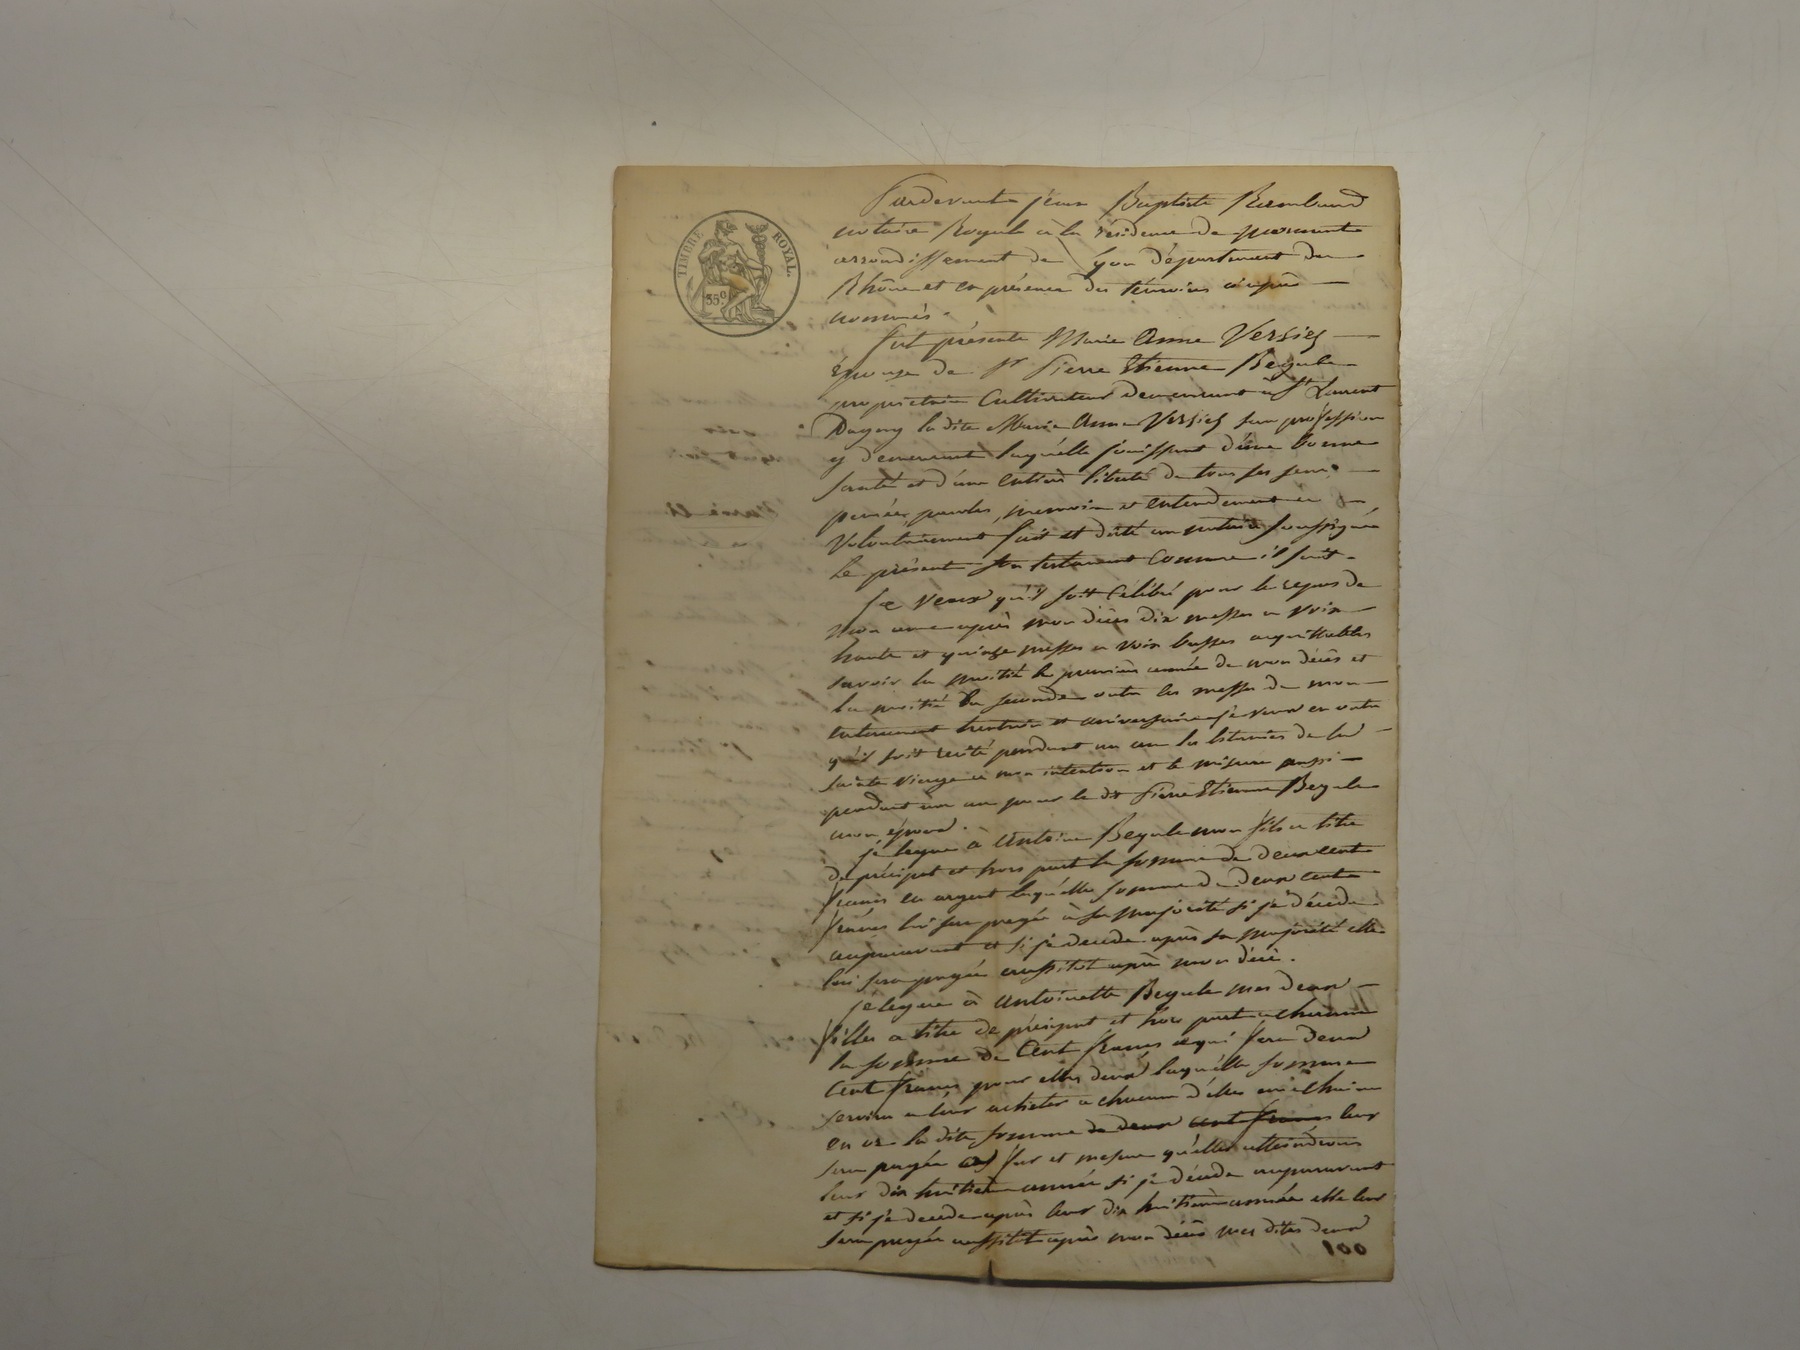 TIMBRE ROYAL.
35c
Pardevant jean Baptiste Rambaud
notaire Royale à la résidence de mornant
arrondissement de Lyon département du
Rhône et en présence des témoins ci après
nommés.
fut présente Marie Anne Versiel
Epouse de Sr Pierre Etienne Begule
propriétaire Cultivateur demeurant à St Laurent
Dagny la dite Marie Anne Versiel san profession
y demeurant laquélle jouissant d'une bonne
santé et d'une entière liberté de tous ses sens
pensées, paroles, memoire et entendement a
Volontairement fait et dicté au notaire soussignée
le présent son testament Comme il suit.
Je veux qu'il soit Célébré pour le repos de
mon ame après mon décès dix messes a voix
haute et quinze messes a voix basses acquittables
savoir la moitié la première année de mon décès et
la moitié la seconde outre les messes de mon
enterrement trentain et aniversaire je veux en outre
qu'il soit récité pendant un an les litanies de la
sainte Vierge à mon intention et le même aussi
pendant un an pour le dit Pierre Etienne Begule
mon époux.
je legue à Antoine Begule mon fils a titre
de préciput et hors part la somme de deux cent
francs en argent laquélle somme de deux cent
francs lui sera payée à sa majorité si je décede
auparavant et si je decede après sa majorité elle
lui sera payée aussitot après mon décè.
je legue à Antoinette Begule mes deux
filles a titre de préciput et hors part a chacune
la somme de Cent francs cequi fera deux
Cent francs pour elles deux laquélle somme
servira a leur acheter a chacune d'élles une chaine
en or la dite somme de deux cent francs leur
sera payée au fur et mesure qu'elles atteindrons
leur dix huitième année si je décede auparavant
et si je decede après leur dix huitième année elle leur
sera payée aussitot après mon décès mes dites deux
100